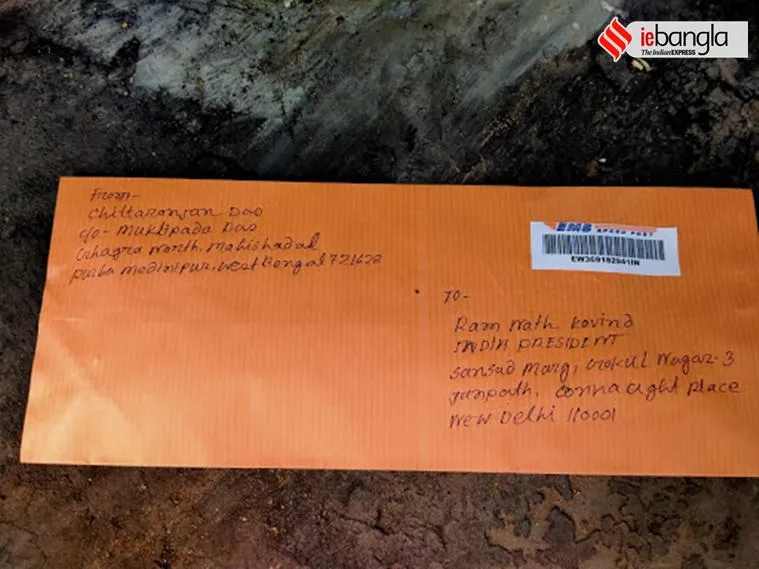 iebangla
The Indian EXPRESS
From-
Chittaranjan Das
c/o- Muktipada Das
North Mahishadal
Purba Medinipur, West Bengal 721628
EMS SPEED POST
EW369182941IN
TO-
Ram Nath Kovind
INDIA PRESIDENT
Sansad Marg, Gokul Nagar-3
Janpath, Connaught place
New Delhi 110001